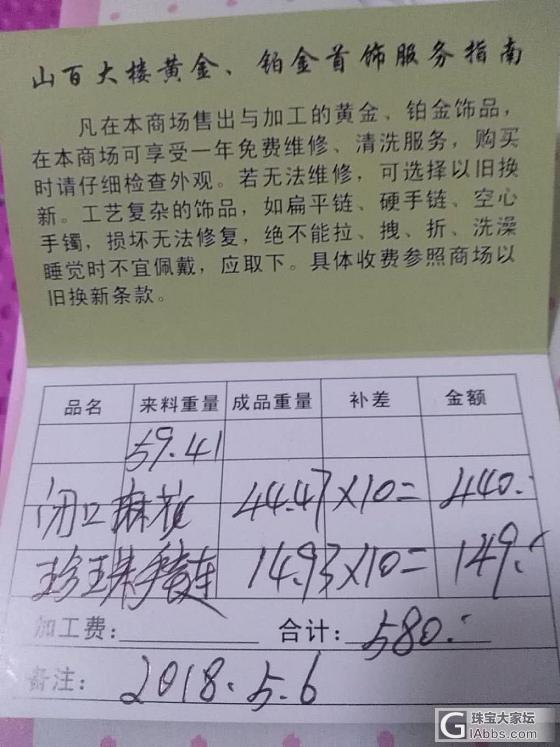 山百大楼黄金、铂金首饰服务指南
凡在本商场售出与加工的黄金、铂金饰品，
在本商场可享受一年免费维修、清洗服务，购买
时请仔细检查外观。若无法维修，可选择以旧换
新。工艺复杂的饰品，如扁平链、硬手链、空心
手镯，损坏无法修复，绝不能拉、拽、折、洗澡
睡觉时不宜佩戴，应取下。具体收费参照商场以
旧换新条款。
品名 来料重量 成品重量 补差 金额
59.41
闭口麻花 44.47×10= 440.-
珍珠手链 14.93×10= 149.-
加工费： 合计：580.-
备注：2018.5.6
珠宝大家坛
GIAbbs.com